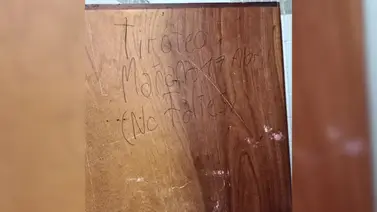 Tiroteo
Mañana
(No Falte